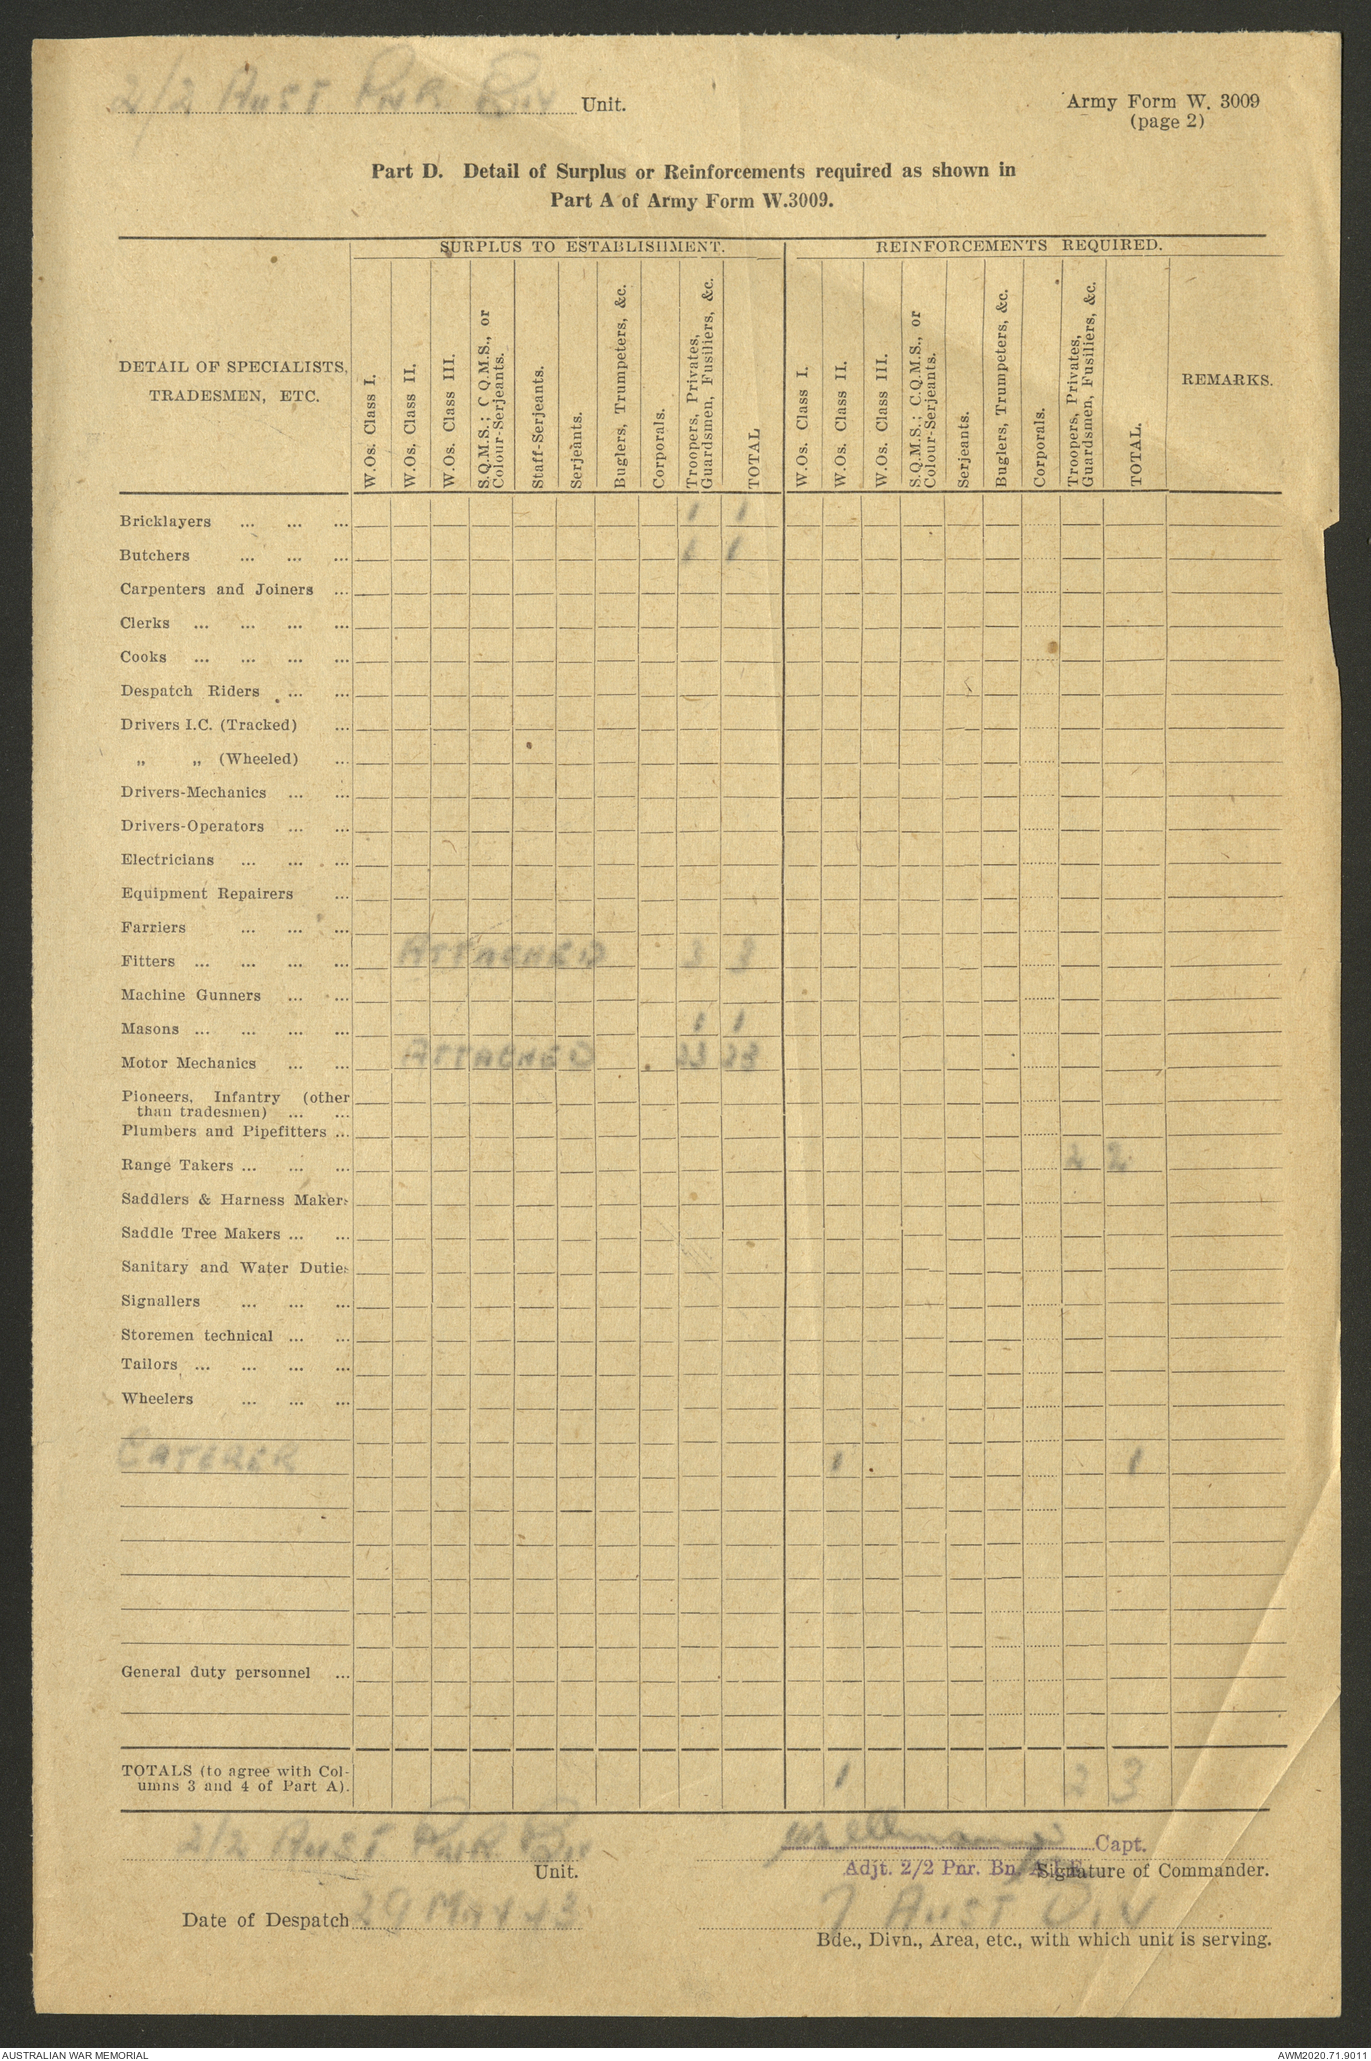 2/2 Aust Pnr Bn Unit.
Army Form W. 3009
(page 2)
Part D. Detail of Surplus or Reinforcements required as shown in
Part A of Army Form W.3009.
SURPLUS TO ESTABLISHMENT. REINFORCEMENTS REQUIRED.
DETAIL OF SPECIALISTS,
TRADESMEN, ETC.
W.Os. Class I.
W.Os. Class II.
W.Os. Class III.
S.Q.M.S.; C Q.M.S., or
Colour-Serjeants.
Staff-Serjeants.
Serjeants.
Buglers, Trumpeters, &c.
Corporals.
Troopers, Privates,
Guardsmen, Fusiliers, &c.
TOTAL
W.Os. Class I.
W.Os. Class II.
W.Os. Class III.
S.Q.M.S.; C.Q.M.S., or
Colour-Serjeants.
Serjeants.
Buglers, Trumpeters, &c.
Corporals.
Troopers, Privates,
Guardsmen, Fusiliers, &c.
TOTAL.
REMARKS.
Bricklayers ... ... ... 1 1
Butchers ... ... ... 1 1
Carpenters and Joiners ...
Clerks ... ... ... ...
Cooks ... ... ... ...
Despatch Riders ... ...
Drivers I.C. (Tracked) ...
„ „ (Wheeled) ...
Drivers-Mechanics ... ...
Drivers-Operators ... ...
Electricians ... ... ...
Equipment Repairers ...
Farriers ... ... ...
Fitters ... ... ... ... ATTACHED 3 3
Machine Gunners ... ...
Masons ... ... ... ... 1 1
Motor Mechanics ... ... ATTACHED 23 23
Pioneers, Infantry (other
than tradesmen) ... ...
Plumbers and Pipefitters ...
Range Takers ... ... ... 2 2
Saddlers & Harness Makers
Saddle Tree Makers ... ...
Sanitary and Water Duties
Signallers ... ... ...
Storemen technical ... ...
Tailors ... ... ... ...
Wheelers ... ... ...
CATERER 1 1
General duty personnel ...
TOTALS (to agree with Col-
umns 3 and 4 of Part A). 1 2 3
2/2 AUST PNR BN Unit.
Capt.
Adjt. 2/2 Pnr. Bn. Signature of Commander.
Date of Despatch 29 MAY 43
7 AUST DIV
Bde., Divn., Area, etc., with which unit is serving.
AUSTRALIAN WAR MEMORIAL
AWM2020.71.9011